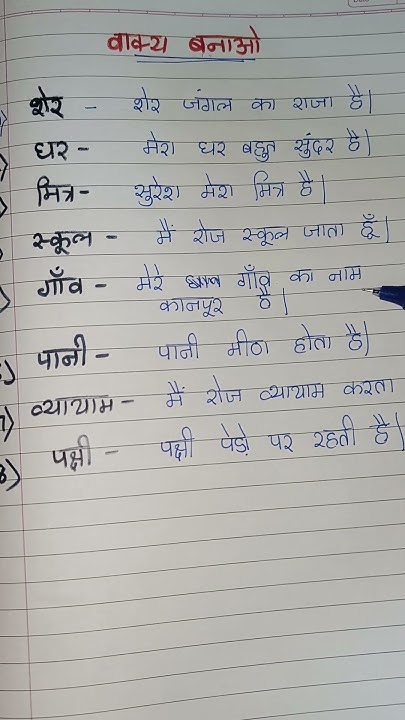 वाक्य बनाओ
शेर - शेर जंगल का राजा है|
घर - मेरा घर बहुत सुंदर है|
मित्र - सुरेश मेरा मित्र है|
स्कूल - मैं रोज स्कूल जाता हूँ|
गाँव - मेरे गाँव का नाम
कानपूर है|
पानी - पानी मीठा होता है|
7) व्यायाम - मैं रोज व्यायाम करता
8) पक्षी - पक्षी पेडो़ पर रहती है|